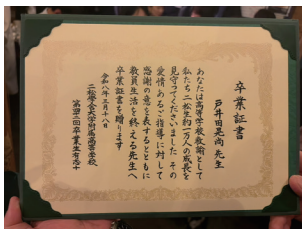 卒業証書
戸井田晃尚 先生
あなたは高等学校教諭として
私たち二松生約一万人の成長を
見守ってくださいました その
愛情あるご指導に対して
感謝の意を表するとともに
教員生活を終える先生へ
卒業証書を贈ります
令和八年三月十八日
二松學舍大学附属高等学校
第四二回卒業生有志